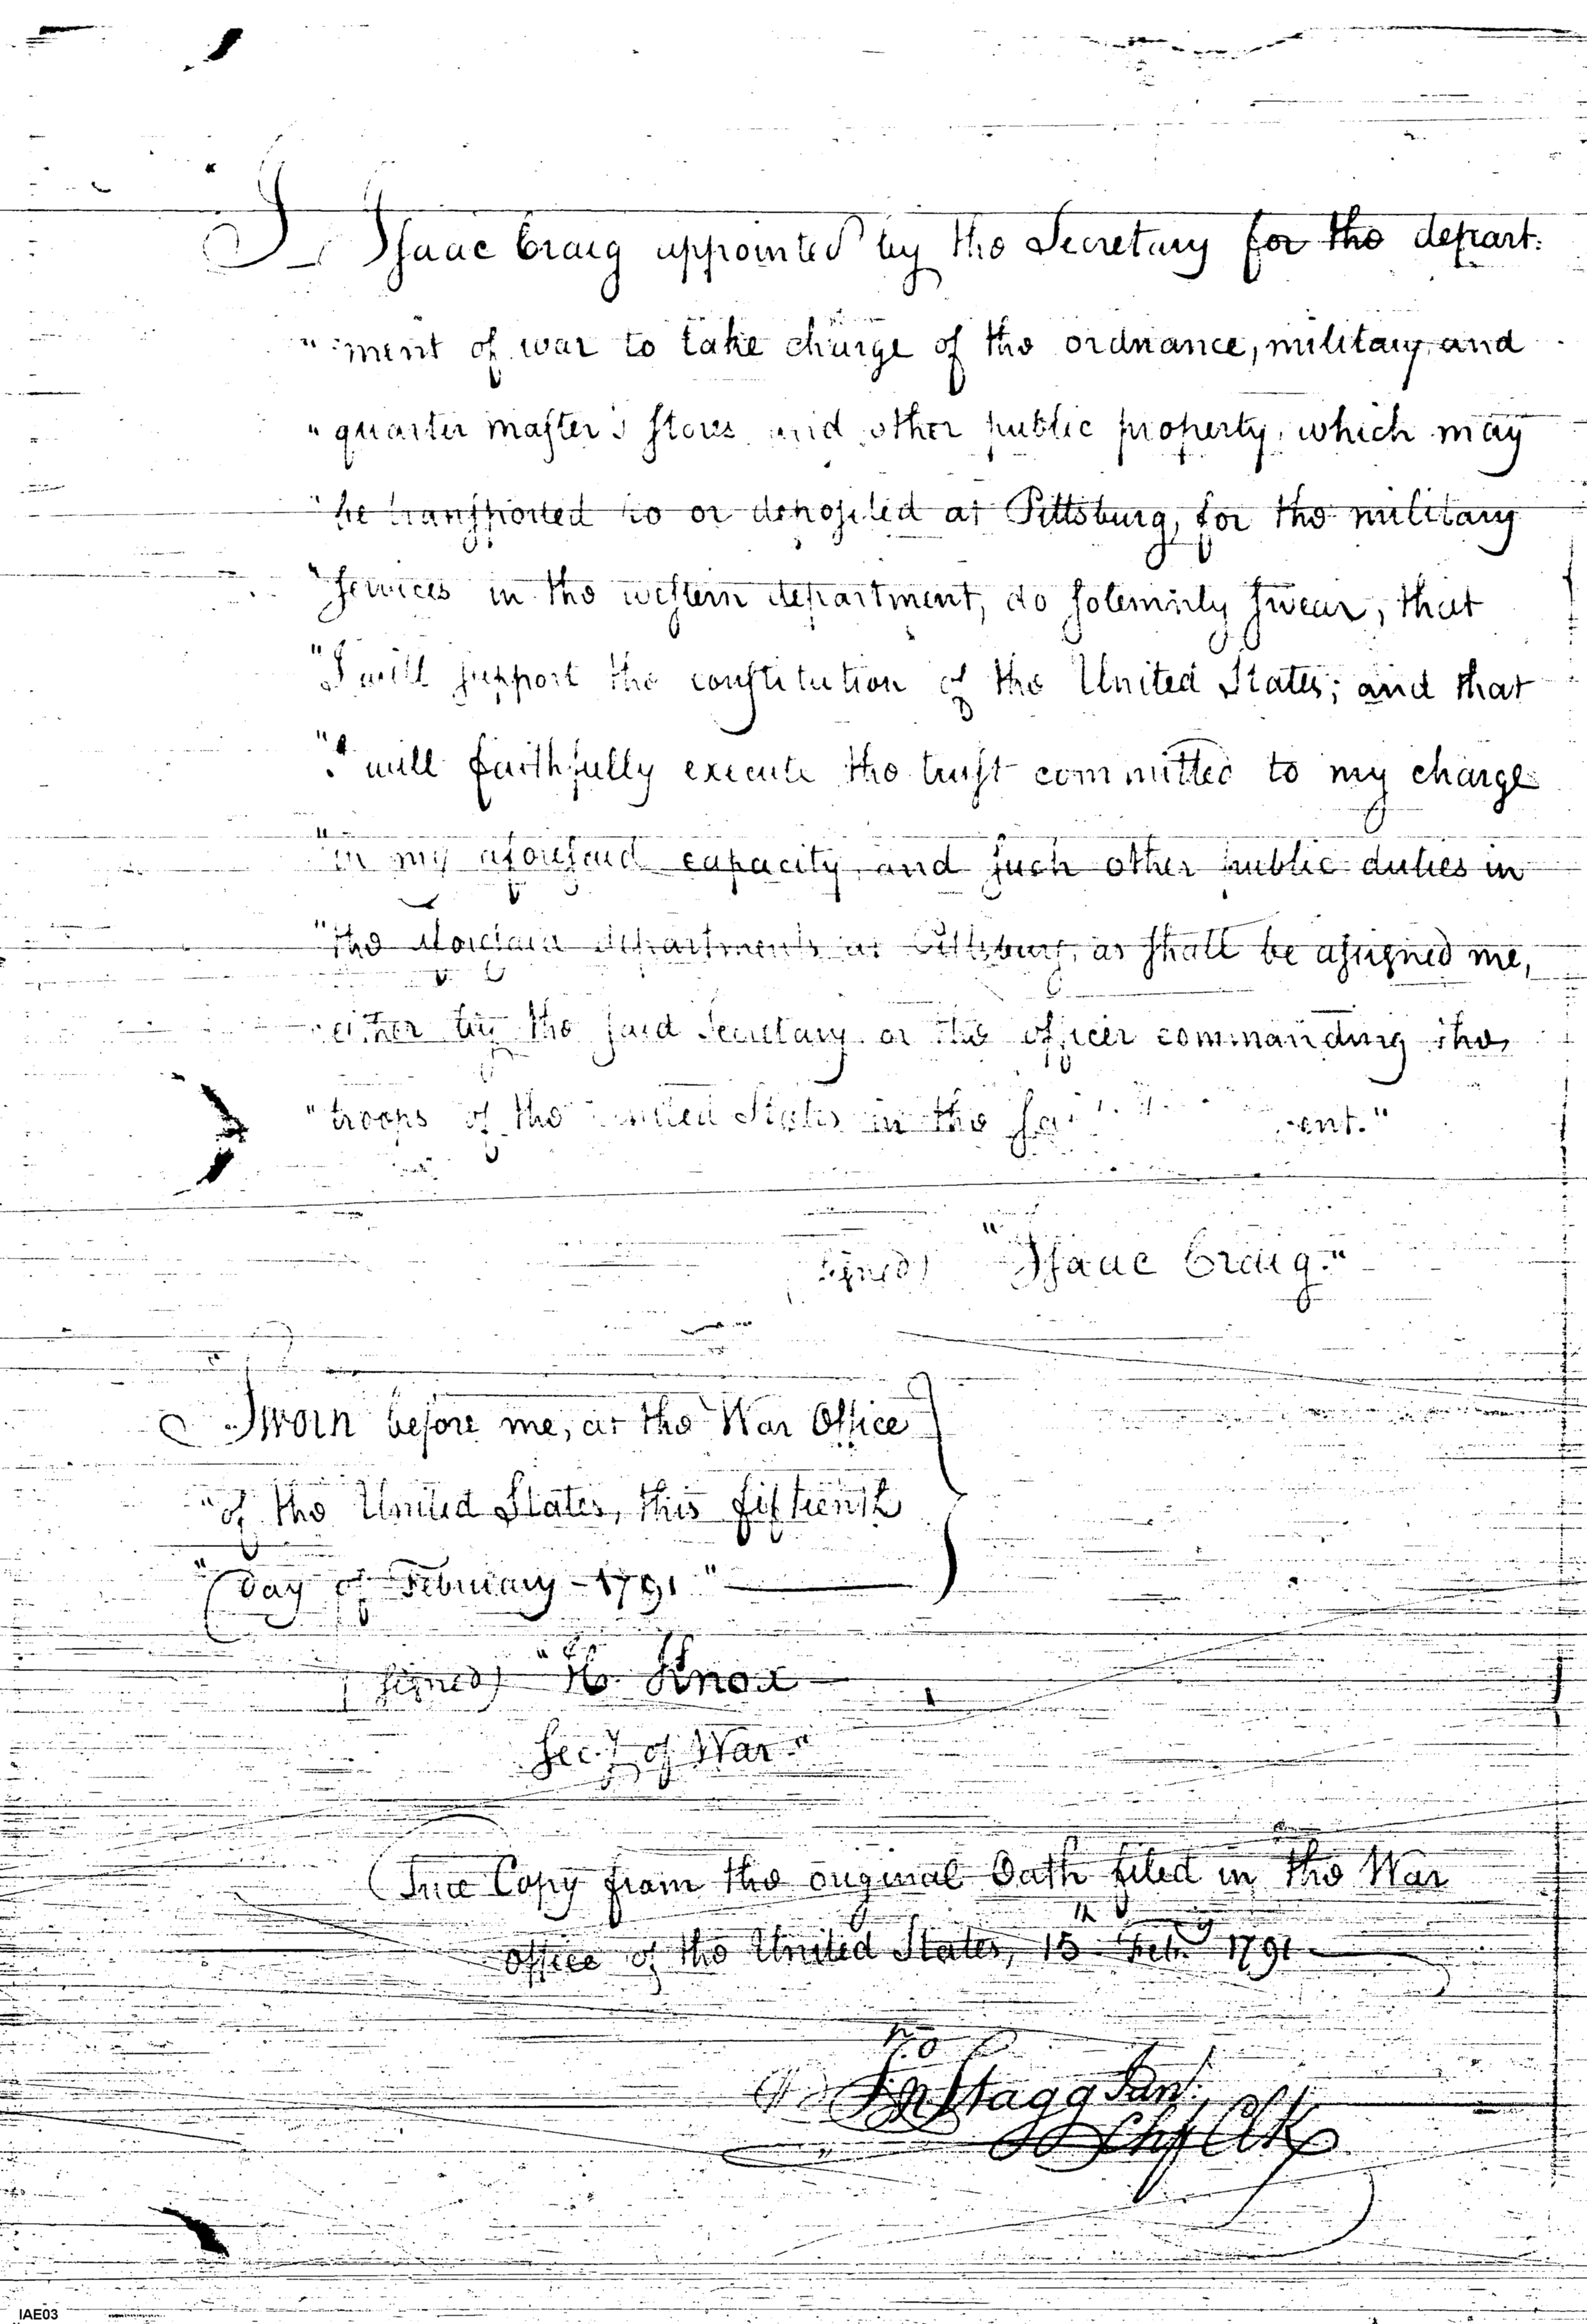 I, Isaac Craig appointed by the Secretary for the depart:
":ment of war to take charge of the ordnance, military, and
"quarter master's stores and other public property, which may
"be transported to or deposited at Pittsburg, for the military
"services in the western department, do solemnly swear, that
"I will support the constitution of the United States; and that
"I will faithfully execute the trust committed to my charge
"in my aforesaid capacity, and such other public duties in
"the aforesaid departments at Pittsburg, as shall be assigned me,
either by the said Secretary or the officer commanding the
"troops of the United States in the
(signed) "Isaac Craig."
Sworn before me, at the War Office
"of the United States, this fifteenth
"day of February – 1791"
(signed) "H. Knox
Secy. of War"
True Copy from the original Oath filed in the War
office of the United States, 15th Feby. 1791
Jno Stagg Junr.
Chf Clk
IAE03